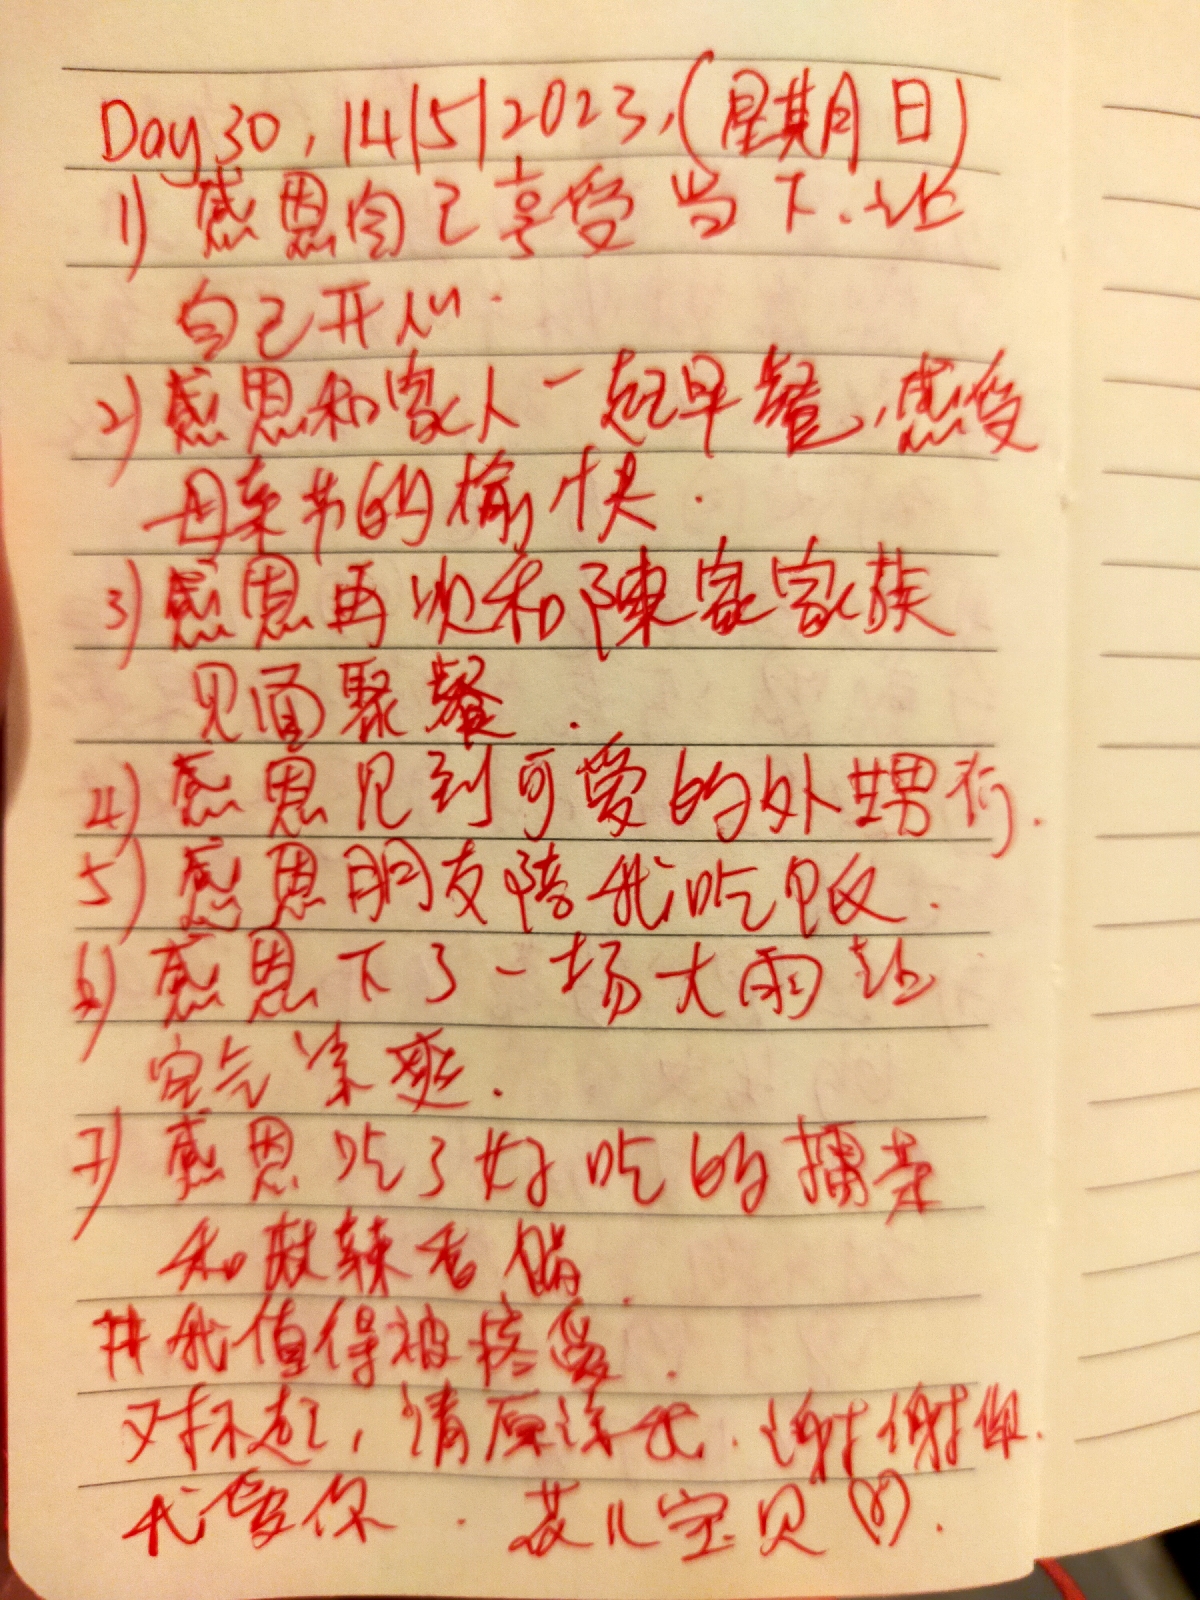 Day 30, 14/5/2023, (星期日)
1) 感恩自己享受当下.让
自己开心.
2) 感恩和家人一起早餐,感受
母亲节的愉快.
3) 感恩再次和陳家家族
见面聚餐.
4) 感恩见到可爱的外甥们.
5) 感恩朋友陪我吃饭.
6) 感恩下了一场大雨让
空气凉爽.
7) 感恩吃了好吃的擂茶
和麻辣香锅.
# 我值得被疼爱.
对不起,请原谅我.谢谢你.
我爱你. 儿宝贝♡.